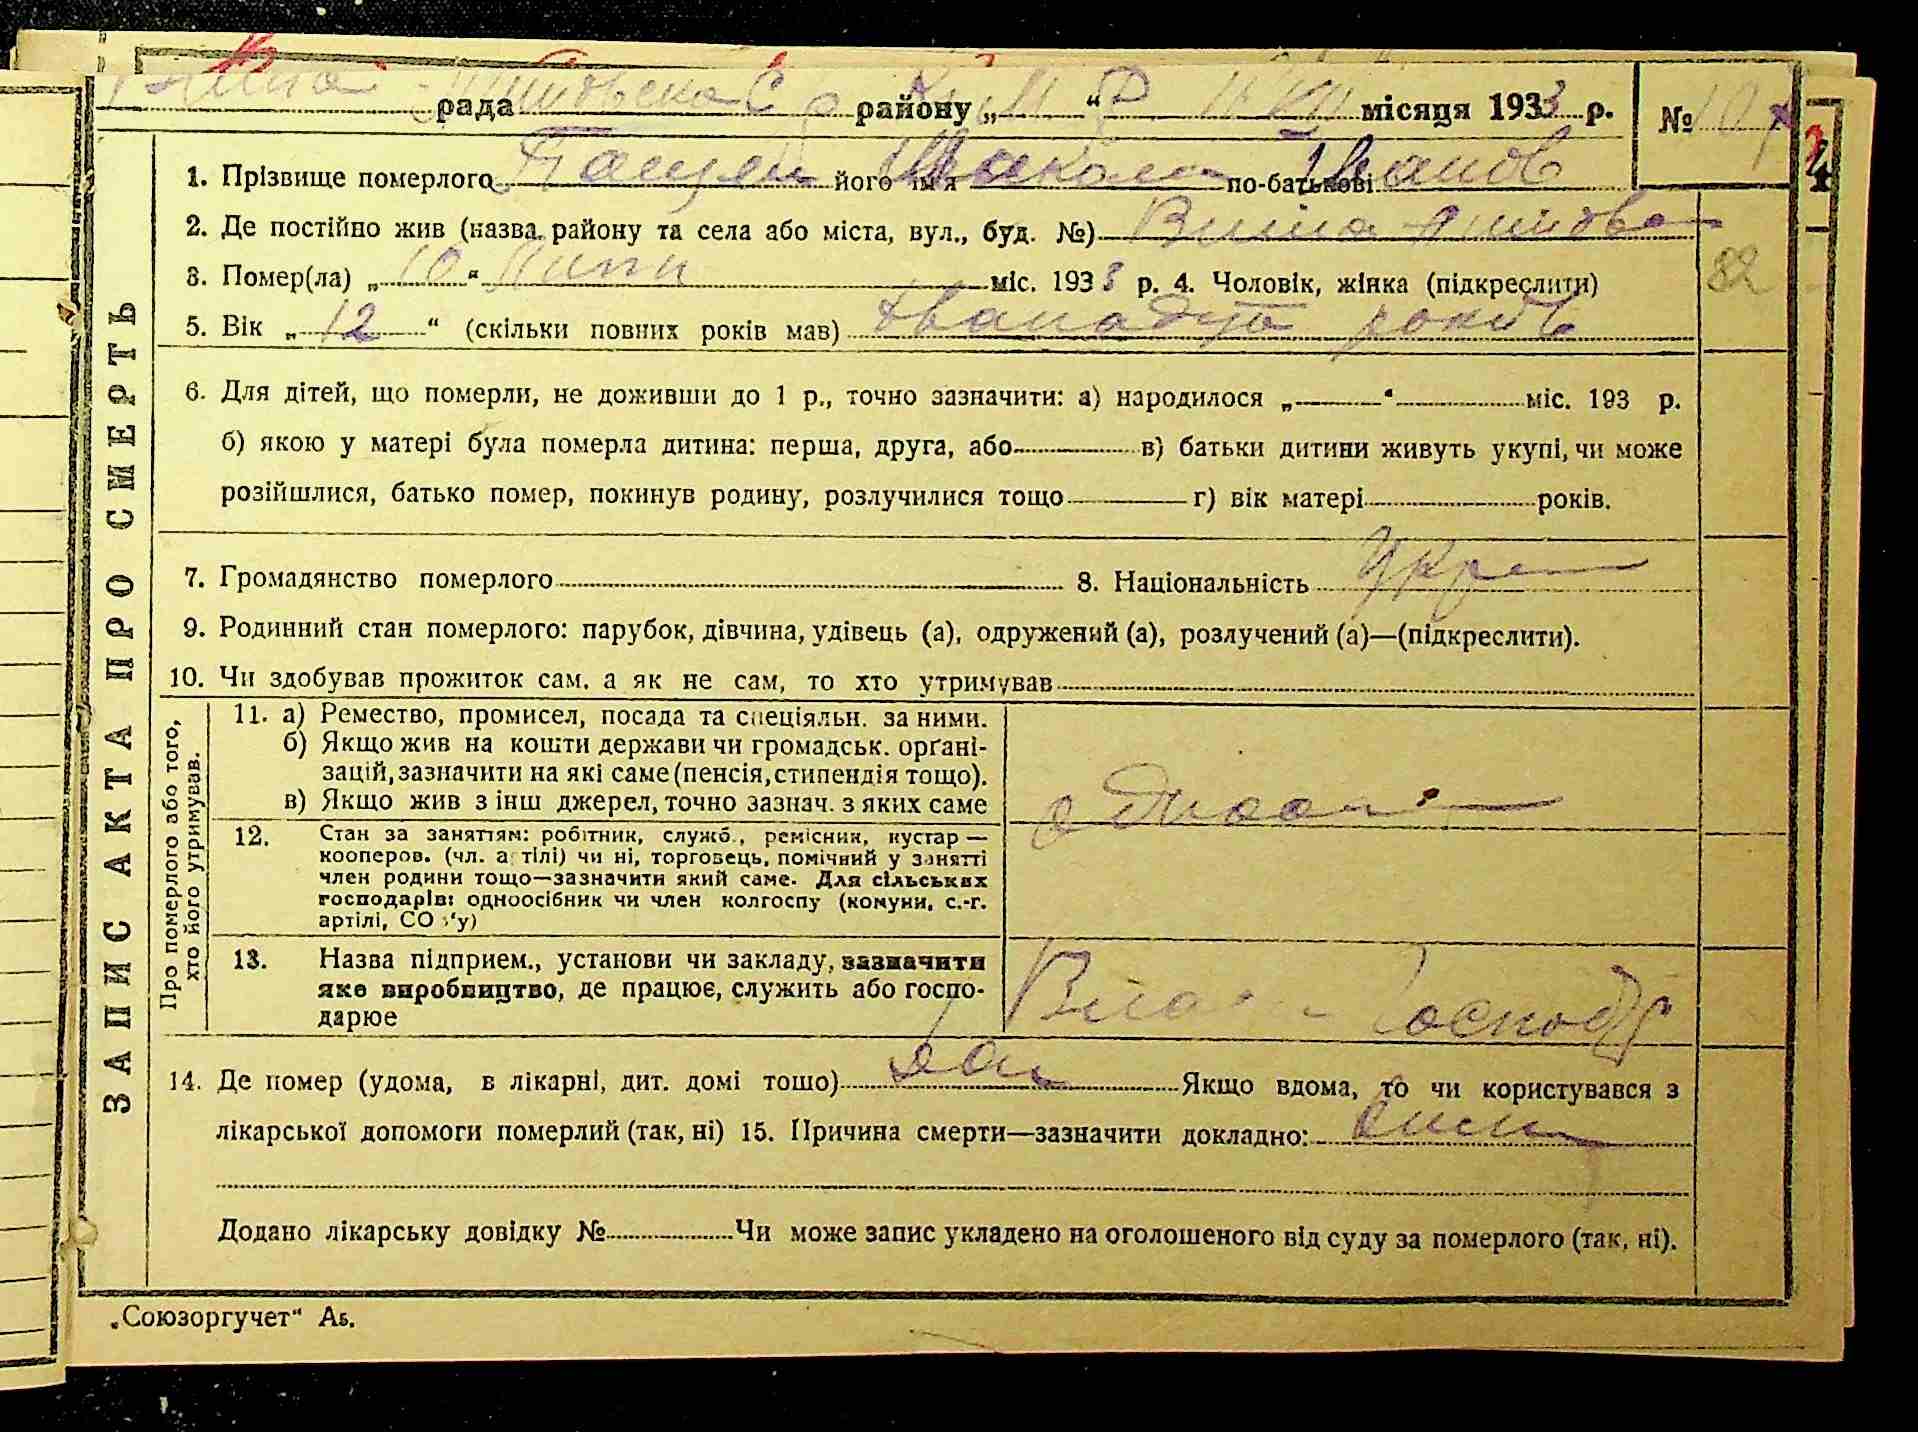 рада району „ “ місяця 1933 р. № 107
1. Прізвище померлого його ім'я Микола по-батькові Іванов
2. Де постійно жив (назва району та села або міста, вул., буд. №)
3. Помер(ла) „10“ Липн міс. 1933 р. 4. Чоловік, жінка (підкреслити)
82
5. Вік „12“ (скільки повних років мав) дванадцть років
6. Для дітей, що померли, не доживши до 1 р., точно зазначити: а) народилося „ “ міс. 193 р.
б) якою у матері була померла дитина: перша, друга, або в) батьки дитини живуть укупі, чи може
розійшлися, батько помер, покинув родину, розлучилися тощо г) вік матері років.
7. Громадянство померлого 8. Національність Укр
9. Родинний стан померлого: парубок, дівчина, удівець (а), одружений (а), розлучений (а)—(підкреслити).
10. Чи здобував прожиток сам, а як не сам, то хто утримував
Про померлого або того,
хто його утримував.
11. а) Ремество, промисел, посада та спеціяльн. за ними.
б) Якщо жив на кошти держави чи громадськ. орґані-
зацій, зазначити на які саме (пенсія, стипендія тощо).
в) Якщо жив з інш джерел, точно зазнач. з яких саме
12. Стан за заняттям: робітник, служб., ремісник, кустар—
кооперов. (чл. артілі) чи ні, торговець, помічний у занятті
член родини тощо—зазначити який саме. Для сільських
господарів: одноосібник чи член колгоспу (комуни, с.-г.
артілі, СО у)
13. Назва підприєм., установи чи закладу, зазначити
яке виробництво, де працює, служить або госпо-
дарює
Господр
14. Де помер (удома, в лікарні, дит. домі тощо) Якщо вдома, то чи користувався з
лікарської допомоги померлий (так, ні) 15. Причина смерти—зазначити докладно:
Додано лікарську довідку № Чи може запис укладено на оголошеного від суду за померлого (так, ні).
ЗАПИС АКТА ПРО СМЕРТЬ
„Союзоргучет“ А5.